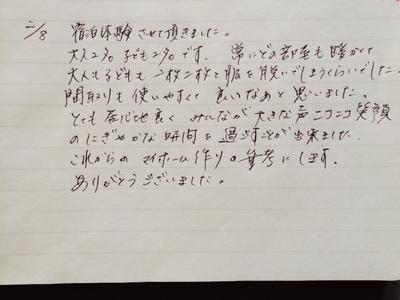 2/8 宿泊体験させて頂きました。
大人2名 子ども2名です。 常にどの部屋も暖かくて
大人も子どもも一枚二枚と服を脱いでしまうくらいでした。
間取りも使いやすくて 良いなあと思いました。
とても居心地良く みんなが大きな声ニコニコ笑顔
のにぎやかな時間を過ごすことが出来ました。
これからの マイホーム作りの参考にします。
ありがとうございました。